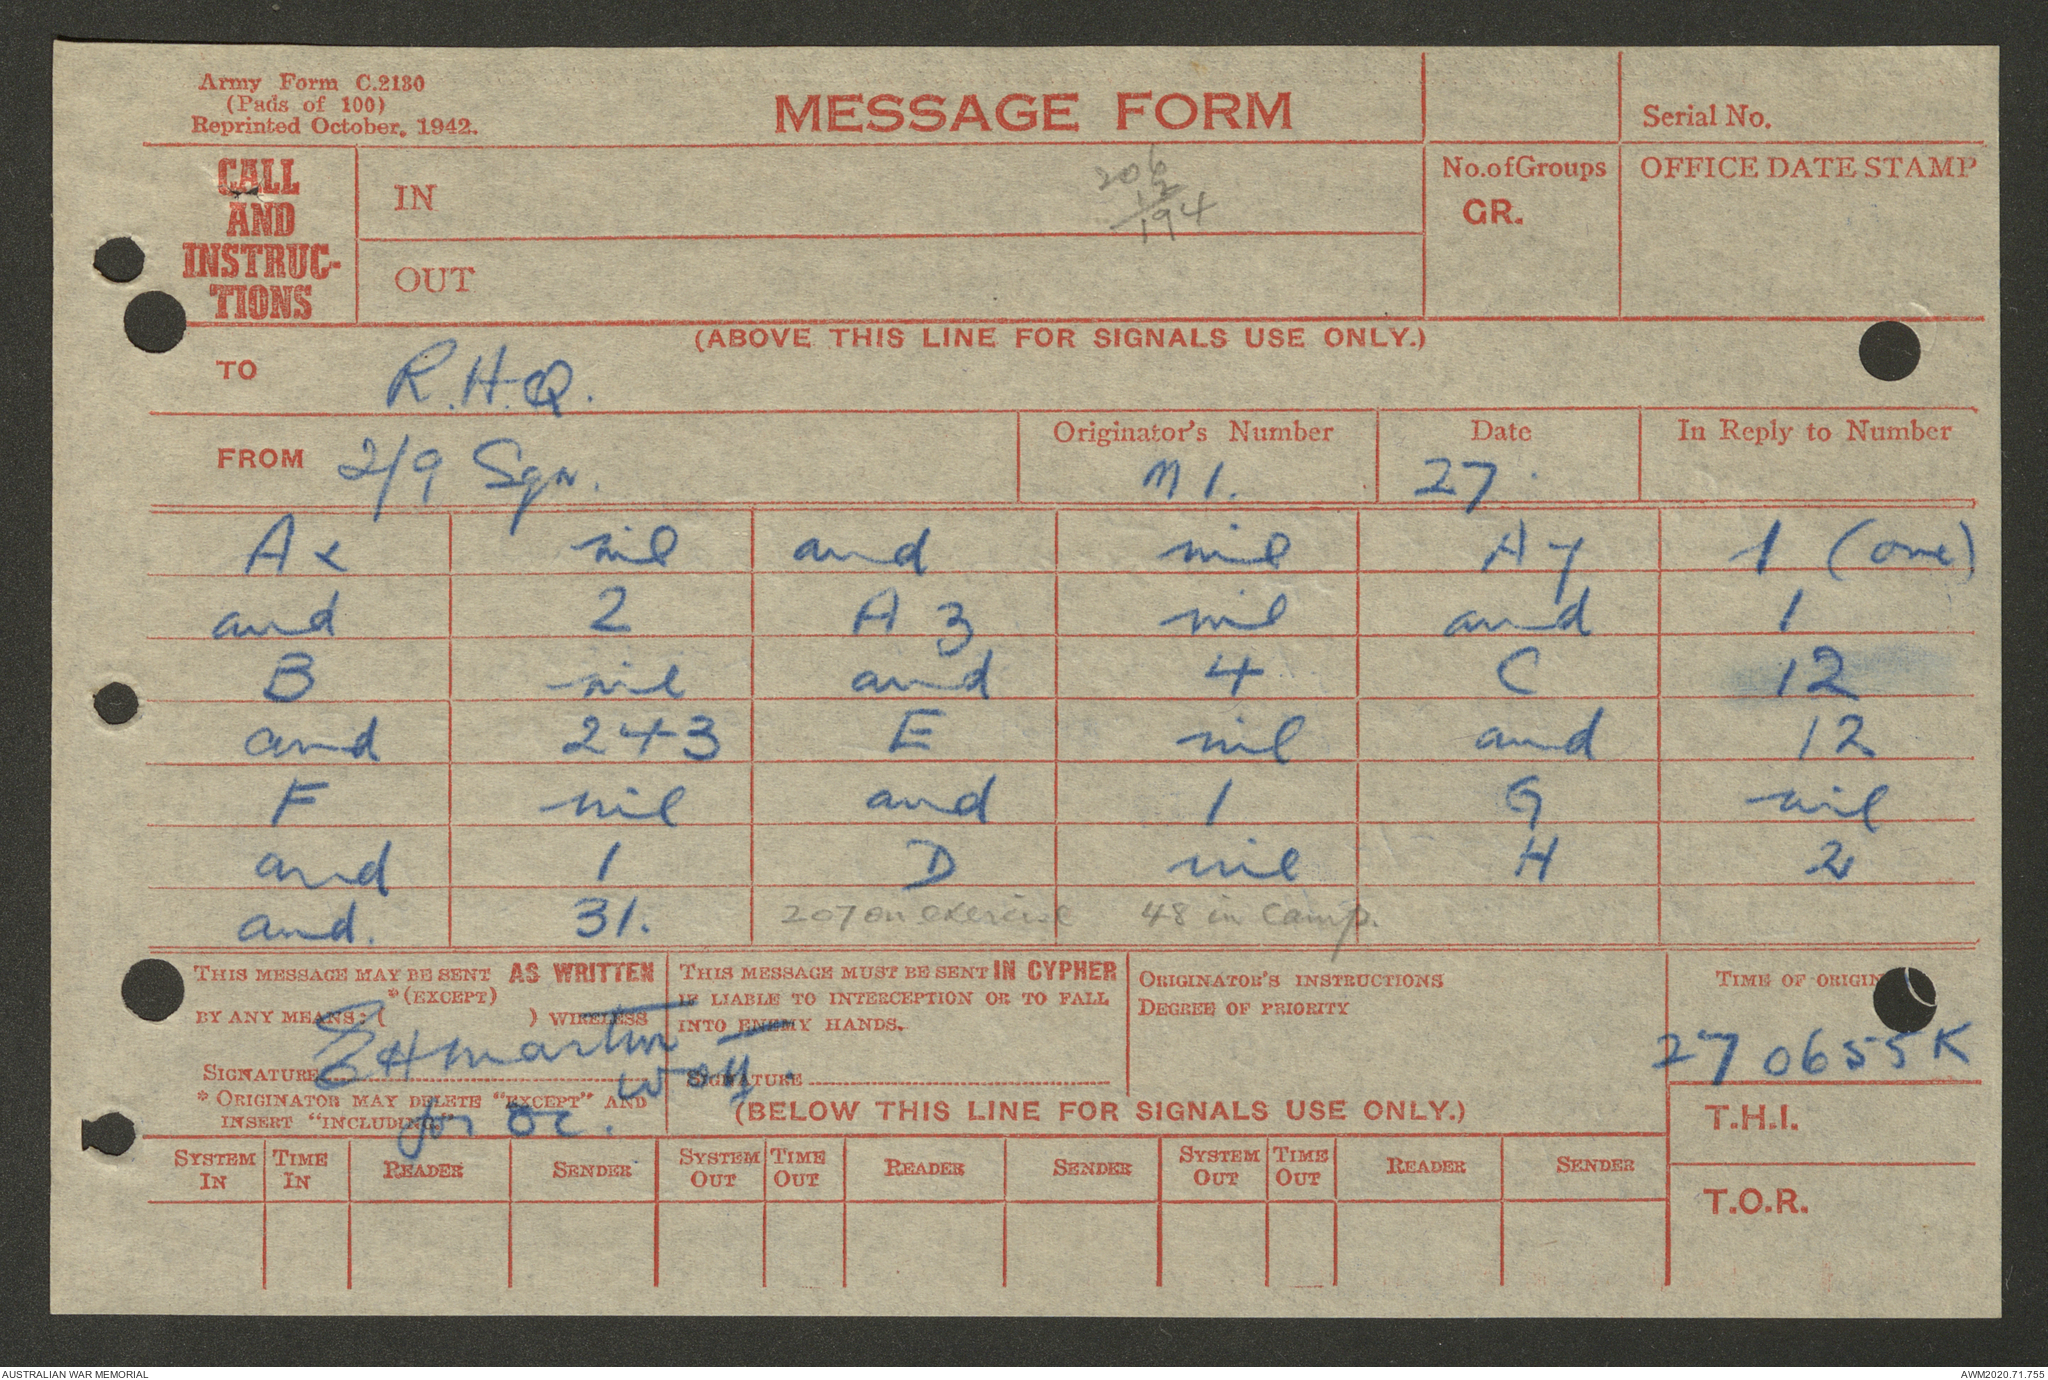 Army Form C.2130
(Pads of 100)
Reprinted October, 1942.
MESSAGE FORM
Serial No.
CALL AND INSTRUC-TIONS
IN
206
12
194
No. of Groups
GR.
OFFICE DATE STAMP
OUT
(ABOVE THIS LINE FOR SIGNALS USE ONLY.)
TO R.H.Q.
FROM 2/9 Sqn.
Originator's Number M1.
Date 27.
In Reply to Number
Ax nil and nil Ay 1 (one)
and 2 A3 nil and 1
B nil and 4 C 12
and 243 E nil and 12
F nil and 1 G nil
and 1 D nil H 2
and. 31. 207 on exercise 48 in camp.
THIS MESSAGE MAY BE SENT AS WRITTEN
*(EXCEPT)
BY ANY MEANS: ( ) WIRELESS
SIGNATURE EHMartin WOII.
for OC.
* ORIGINATOR MAY DELETE "EXCEPT" AND
INSERT "INCLUDING."
THIS MESSAGE MUST BE SENT IN CYPHER
IF LIABLE TO INTERCEPTION OR TO FALL
INTO ENEMY HANDS.
SIGNATURE
ORIGINATOR'S INSTRUCTIONS
DEGREE OF PRIORITY
TIME OF ORIGIN
27 0655K
(BELOW THIS LINE FOR SIGNALS USE ONLY.)
T.H.I.
SYSTEM IN TIME IN READER SENDER SYSTEM OUT TIME OUT READER SENDER SYSTEM OUT TIME OUT READER SENDER
T.O.R.
AUSTRALIAN WAR MEMORIAL
AWM2020.71.755